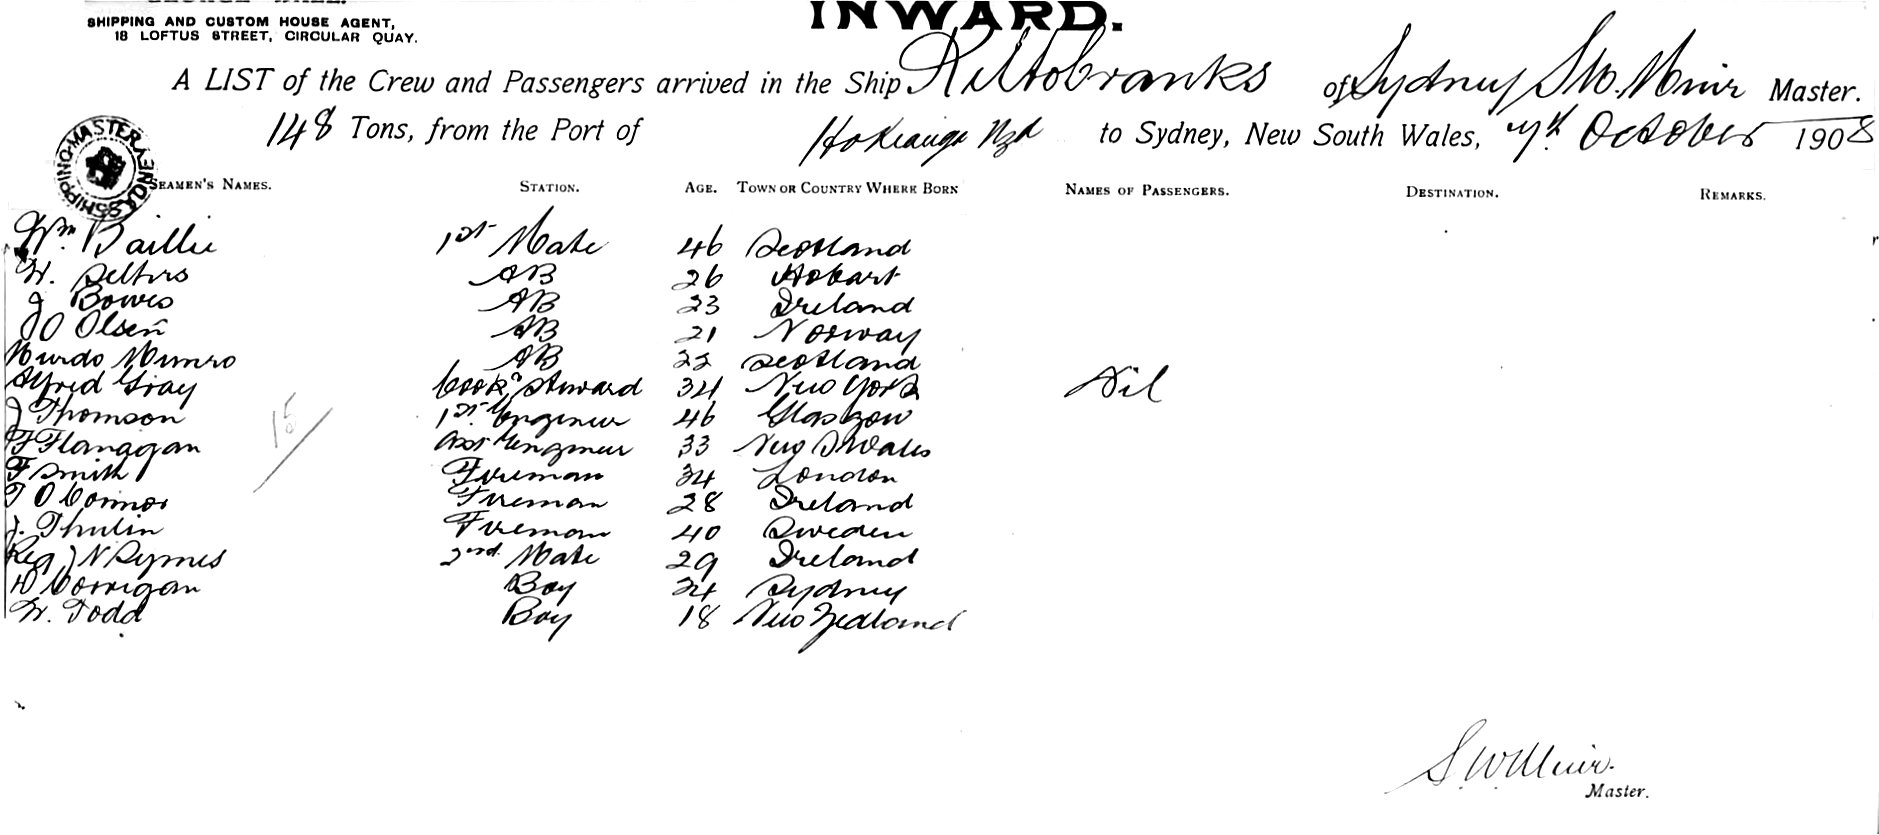 SHIPPING AND CUSTOM HOUSE AGENT,
18 LOFTUS STREET, CIRCULAR QUAY.
INWARD.
A LIST of the Crew and Passengers arrived in the Ship Kiltobranks of Sydney S W. Muir Master.
148 Tons, from the Port of Hokianga Nzd to Sydney, New South Wales, 7th October 1908
SHIPPING MASTER SYDNEY
SEAMEN'S NAMES. STATION. AGE. TOWN OR COUNTRY WHERE BORN NAMES OF PASSENGERS. DESTINATION. REMARKS.
Wm Baillie 1st Mate 46 Scotland
W. AB 26 Hobart
J Bowes AB 23 Ireland
O Olsen AB 21 Norway
Murdo Munro AB 22 Scotland
Alfred Gray Cook & Steward 34 New York Nil
J Thomson 1st Engineer 46 Glasgow
F Flanagan Asst Engineer 33 New S Wales
F Smith Fireman 34 London
T O Connor Fireman 28 Ireland
J. Thulin Fireman 40 Sweden
Reg J N Rymes 2nd Mate 29 Ireland
D Corrigan Boy 24 Sydney
W. Todd Boy 18 New Zealand
15
S. W. Muir.
Master.